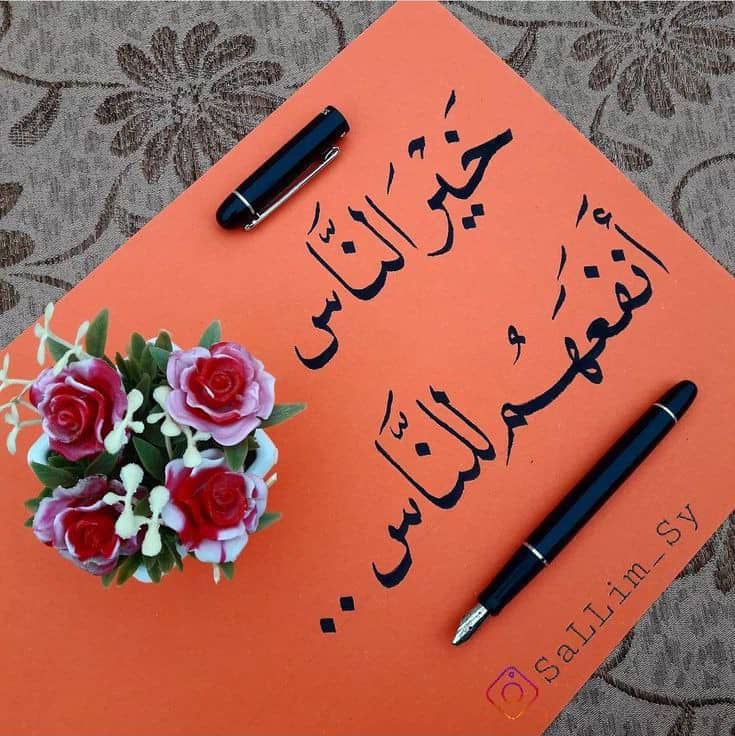 خَيْرُ النَّاسِ
أَنفَعَهُم للنَّاسِ..
SaLLim_Sy